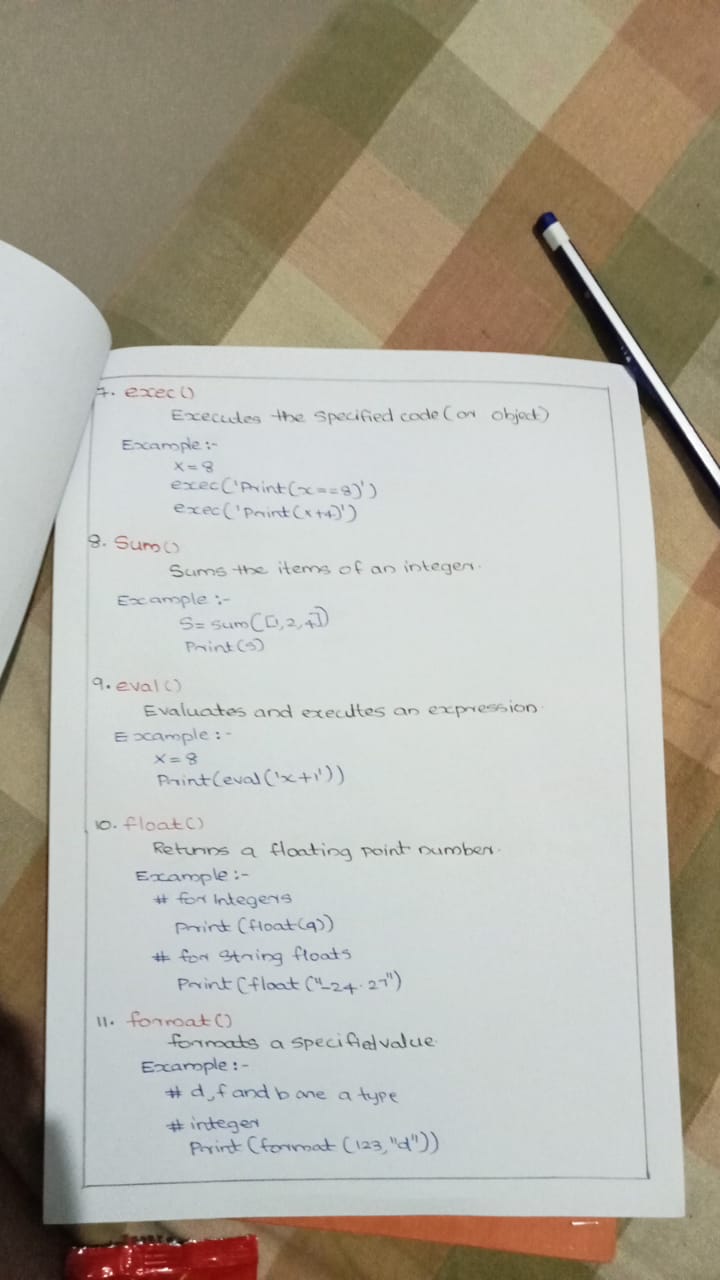 7. exec()
Executes the specified code (or object)
Example :-
x=8
exec('Print(x==8)')
exec('Print(x+4)')
8. Sum()
Sums the items of an integer.
Example :-
S= sum([1,2,4])
Print(s)
9. eval()
Evaluates and execultes an expression.
Example :-
x=8
Print(eval('x+1'))
10. float()
Returns a floating point number.
Example :-
# for Integers
Print (float(9))
# for String floats
Print (float ("-24.27")
11. format()
formats a specified value.
Example :-
# d, f and b are a type
# integer
Print (format (123,"d"))